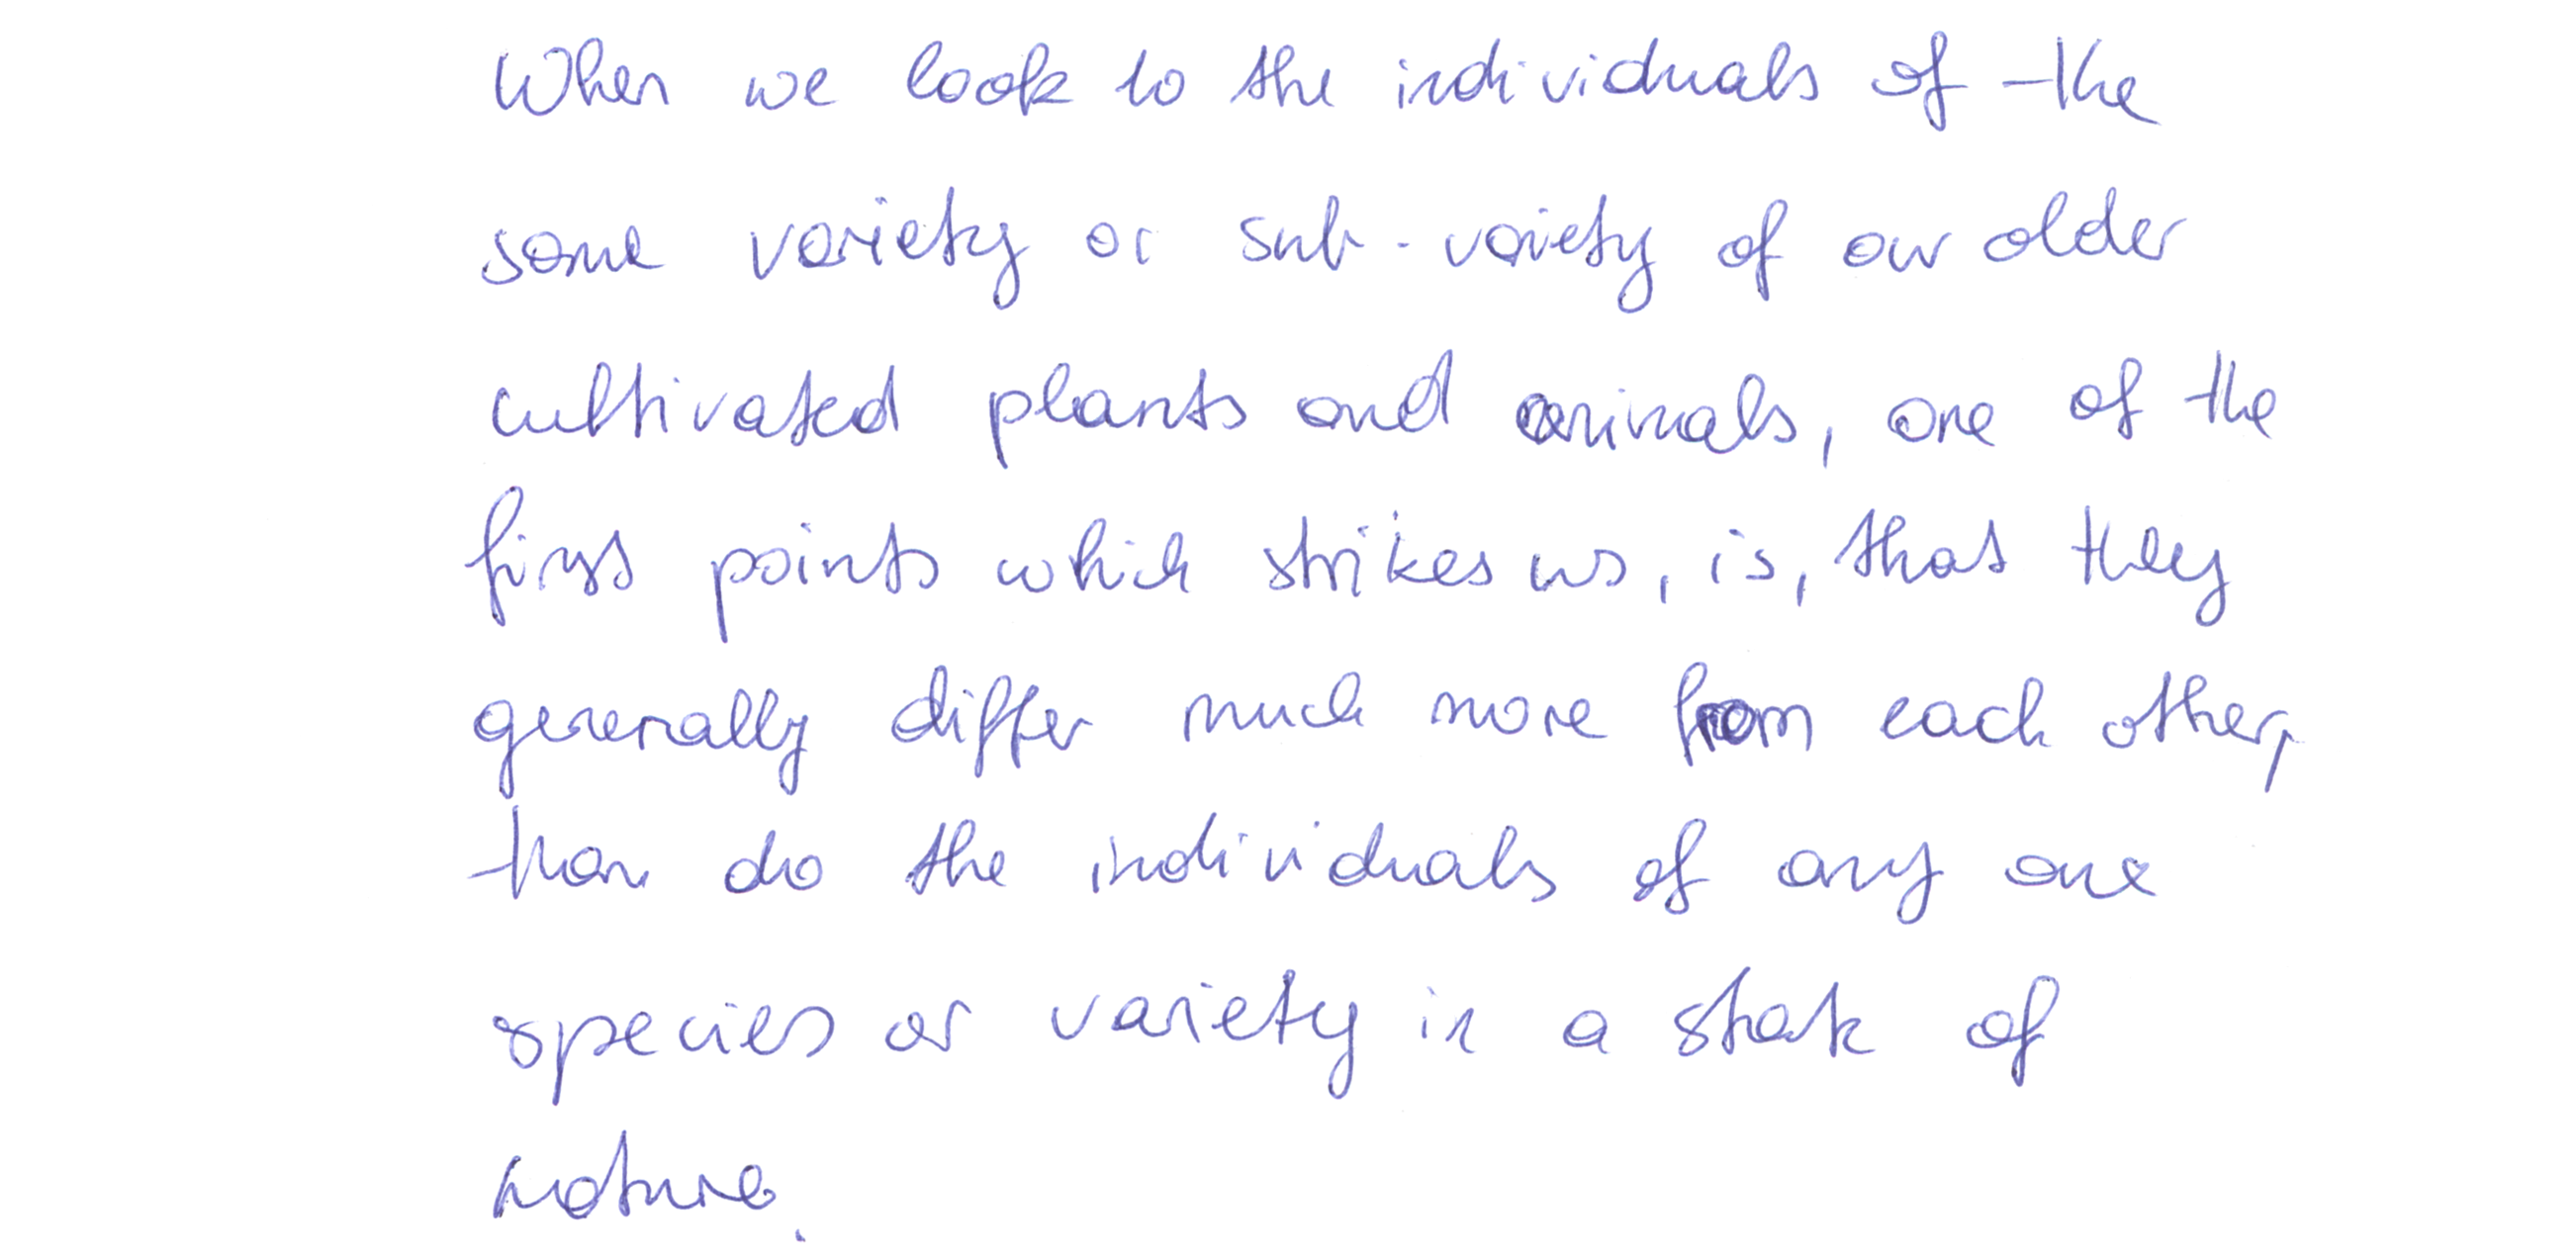 When we look to the individuals of the
same variety or sub-variety of our older
cultivated plants and animals, one of the
first points which strikes us, is, that they
generally differ much more from each other,
than do the individuals of any one
species or variety in a state of
nature.